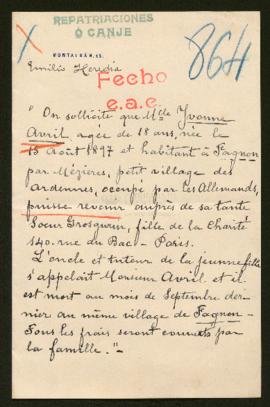 REPATRIACIONES
O CANJE
FONTAINAS, 15.
864
Emilio Heredia
Fecho
e.a.e.
"On sollicite que Mlle Yvonne
Avril, agée de 18 ans, née le
15 Août 1897 et habitant à Fagnon
par Mézières, petit village des
Ardennes, occupé par les Allemands,
puisse revenir auprès de sa tante
Soeur Grosquin, fille de la Charité
140. rue du Bac - Paris.
L'oncle et tuteur de la jeune fille
s'appelait Monsieur Avril et il
est mort au mois de Septembre der-
nier au même village de Fagnon -
Tous les frais seront couverts par
la famille."-